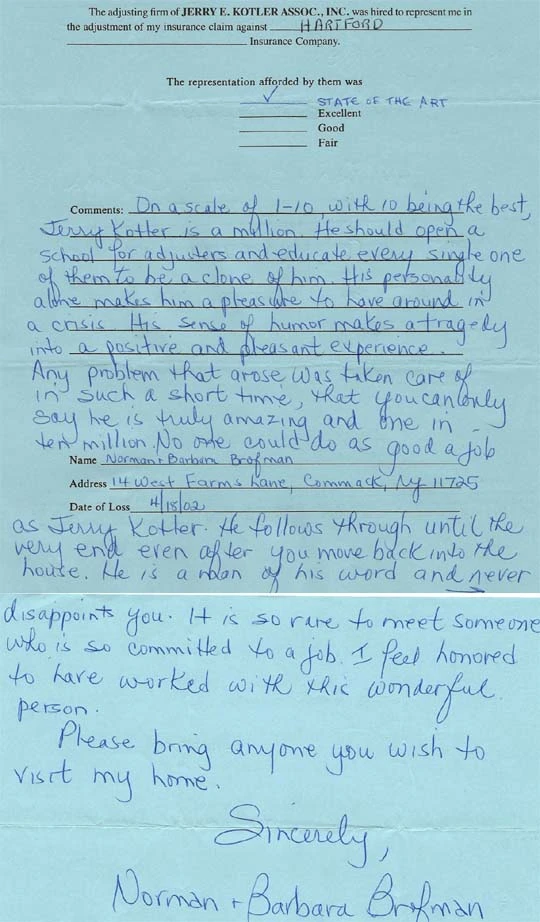 The adjusting firm of JERRY E. KOTLER ASSOC., INC. was hired to represent me in
the adjustment of my insurance claim against HARTFORD
Insurance Company.
The representation afforded by them was
✓ STATE OF THE ART
Excellent
Good
Fair
Comments: On a scale of 1-10, with 10 being the best,
Jerry Kotler is a million. He should open a
school for adjusters and educate every single one
of them to be a clone of him. His personality
alone makes him a pleasure to have around in
a crisis. His sense of humor makes a tragedy
into a positive and pleasant experience.
Any problem that arose was taken care of
in such a short time, that you can only
say he is truly amazing and one in
ten million. No one could do as good a job
Name Norman + Barbara Brofman
Address 14 West Farms Lane, Commack, NY 11725
Date of Loss 4/18/02
as Jerry Kotler. He follows through until the
very end even after you move back into the
house. He is a man of his word and never
disappoints you. It is so rare to meet someone
who is so committed to a job. I feel honored
to have worked with this wonderful
person.
Please bring anyone you wish to
visit my home.
Sincerely,
Norman + Barbara Brofman